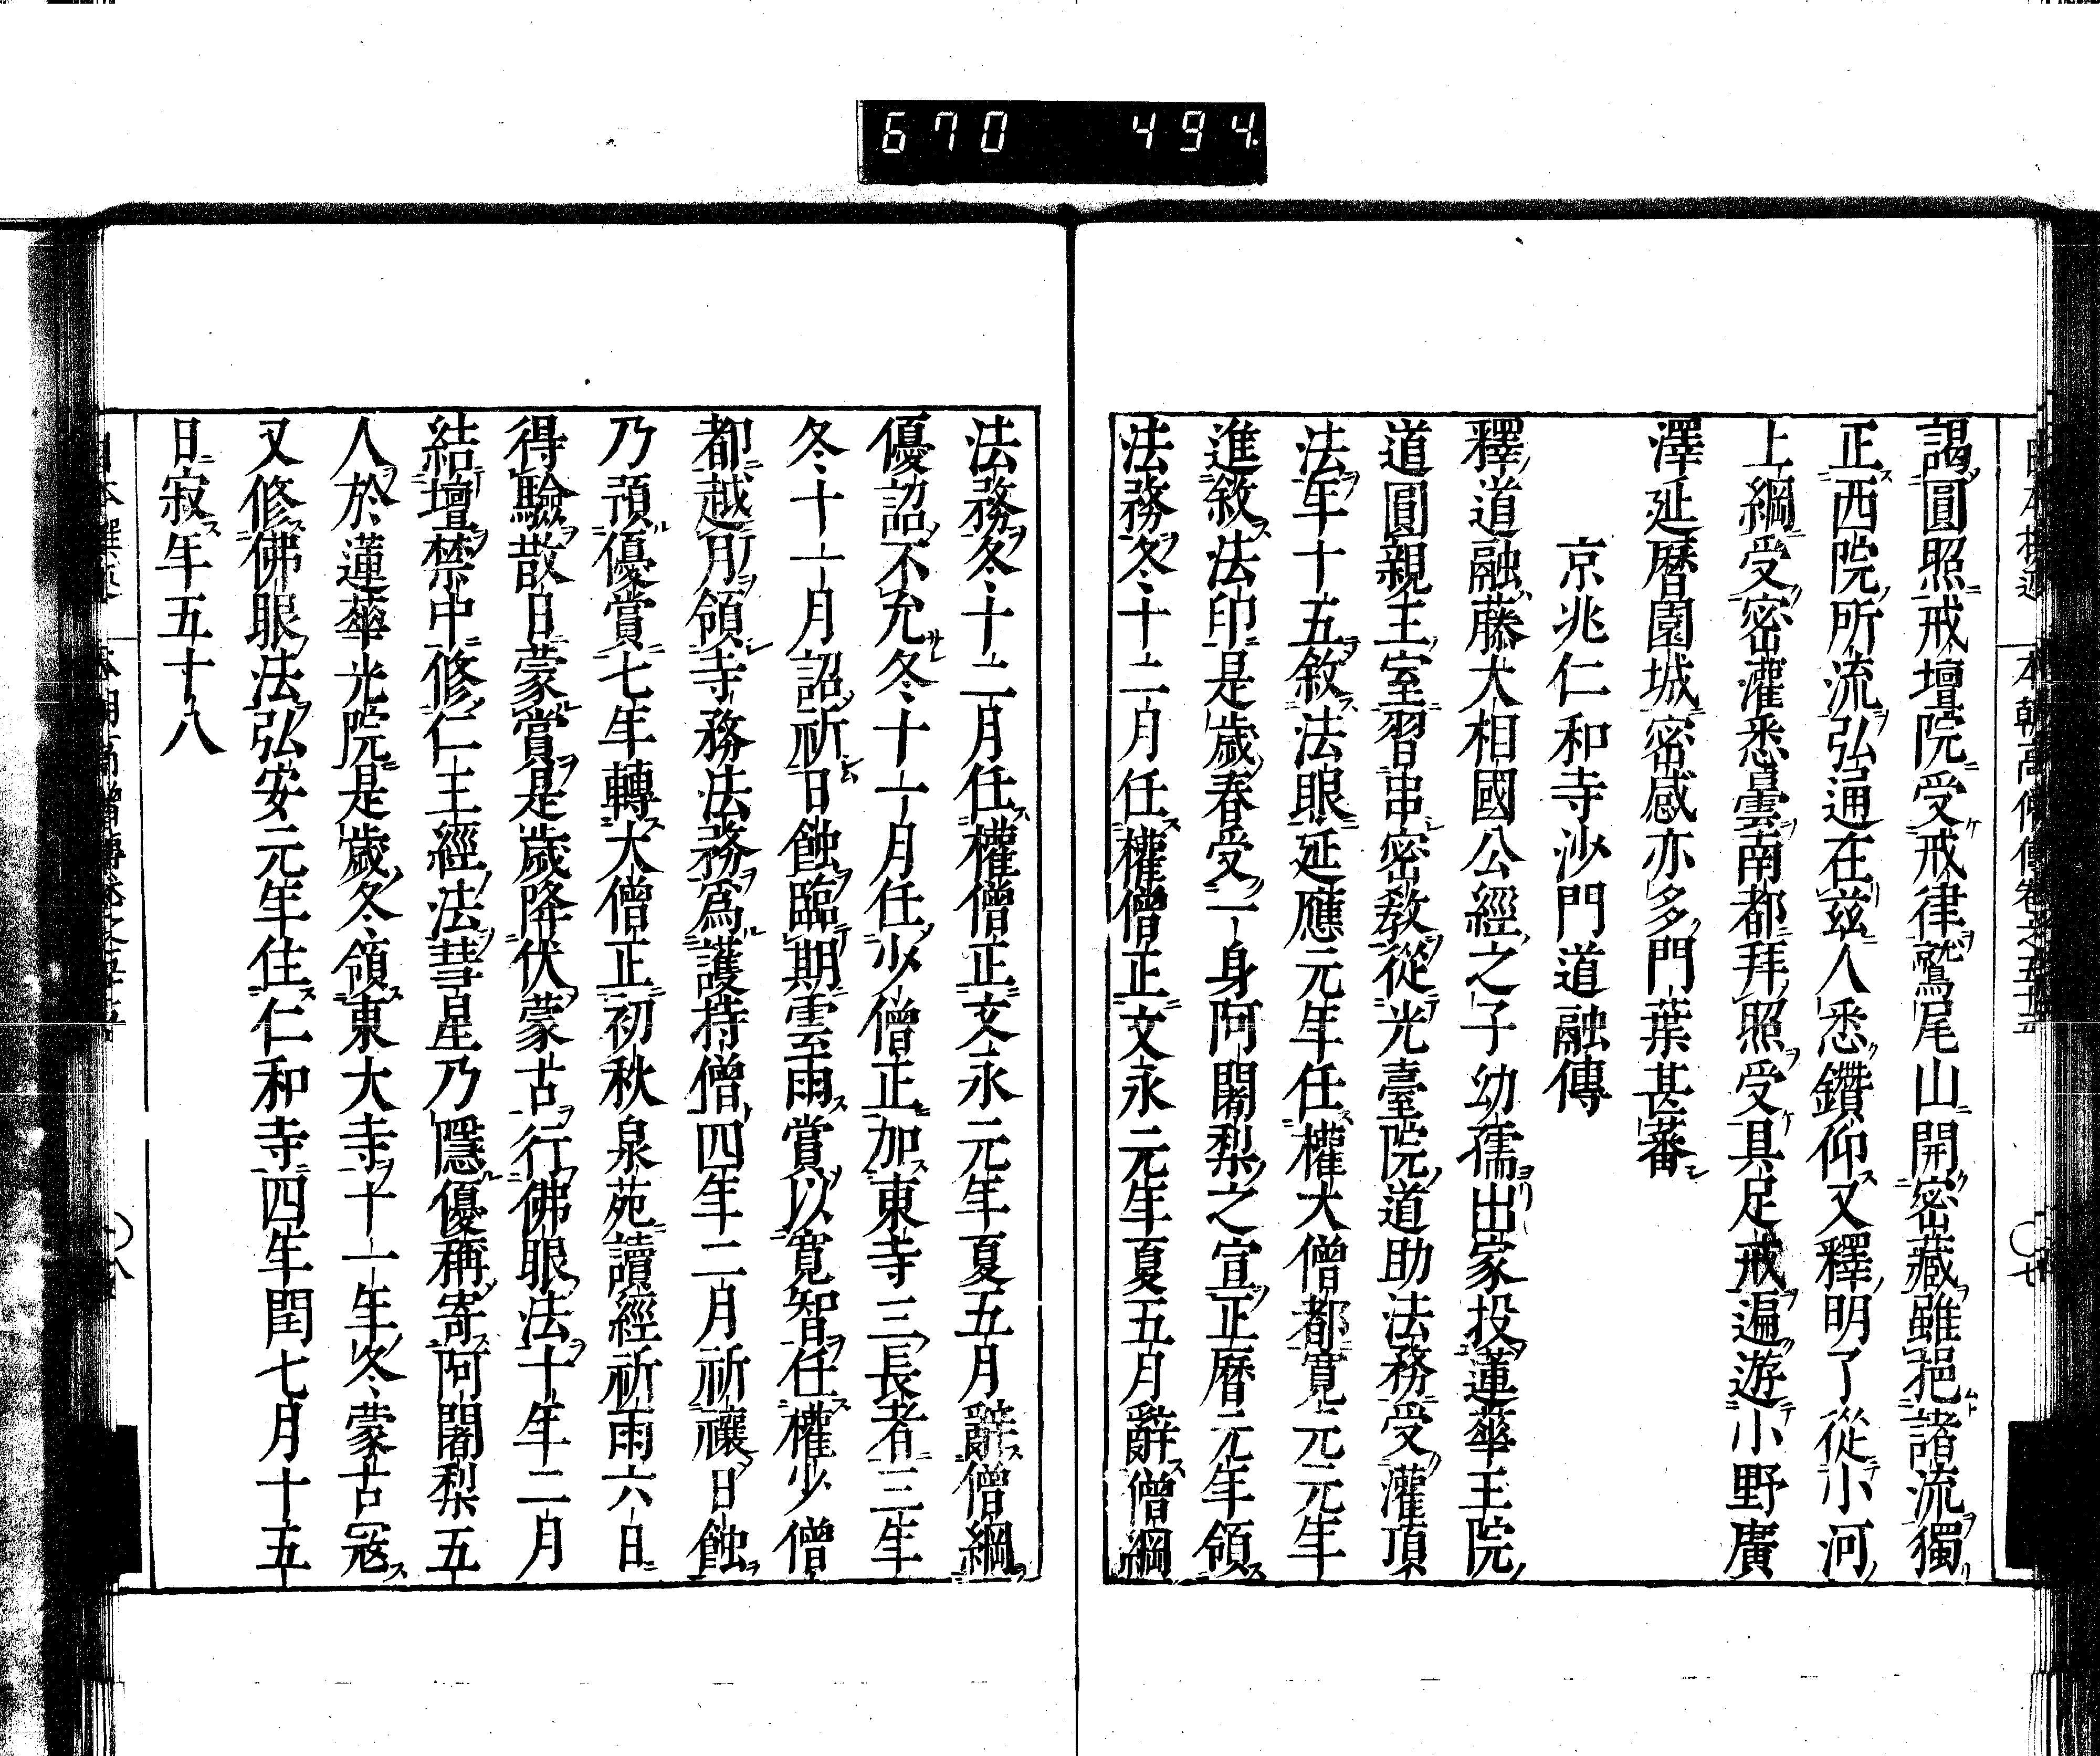 670 494
謁圓照戒壇院受戒律鷲尾山開密藏雖挹諸流獨
正西院所流弘通在茲人悉鑽仰又釋明了從小河
上綱受密灌悉曇南都拜照受具足戒遍遊小野廣
澤延曆園城密感亦多門葉甚蕃
京兆仁和寺沙門道融傳
釋道融藤大相國公經之子幼孺出家投蓮華王院
道圓親王室習串密教從光臺院道助法務受灌頂
法年十五敘法眼延應元年任權大僧都寬元元年
進敘法印是歲春受一身阿闍梨之宣正曆元年領
法務冬十二月任權僧正文永元年夏五月辭僧綱
法務冬十二月任權僧正文永元年夏五月辭僧綱
優詔不允冬十一月任少僧正加東寺三長者三年
冬十一月詔祈日蝕臨期雲雨賞以寬智任權少僧
都越月領寺務法務爲護持僧四年二月祈禳日蝕
乃預優賞七年轉大僧正初秋泉苑讀經祈雨六日
得驗散日蒙賞是歲降伏蒙古行佛眼法十年二月
結壇禁中修仁王經法彗星乃隱優稱寄阿闍梨五
人於蓮華光院是歲冬領東大寺十一年冬蒙古寇
又修佛眼法弘安元年住仁和寺四年閏七月十五
日寂年五十八